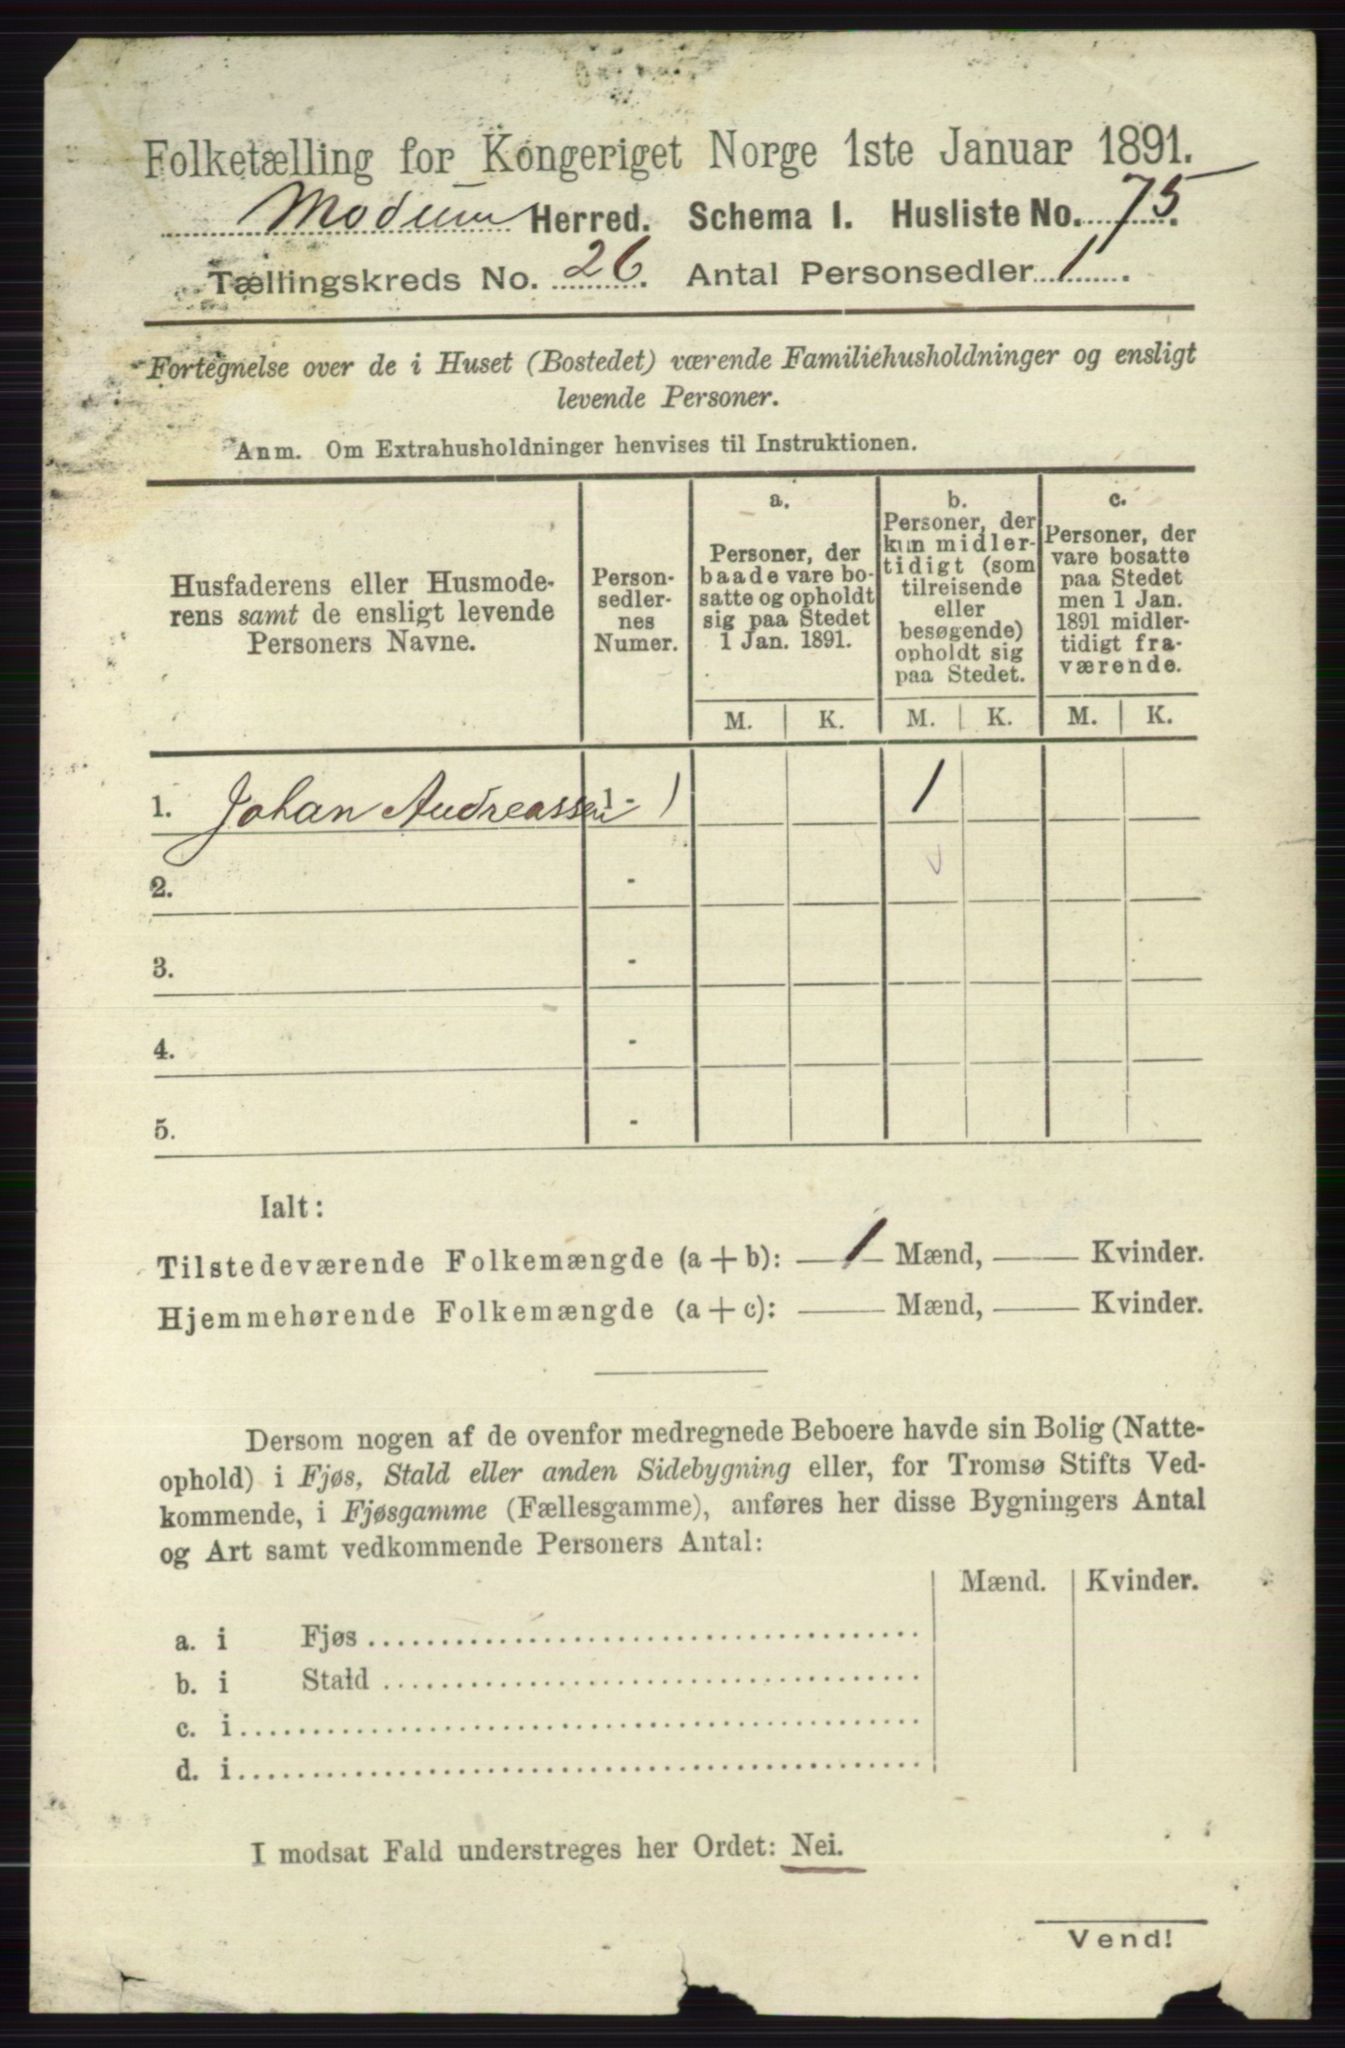 Folketælling for Kongeriget Norge 1ste Januar 1891.
Modum Herred. Schema I. Husliste No. 75.
Tællingskreds No. 26. Antal Personsedler 1.
Fortegnelse over de i Huset (Bostedet) værende Familiehusholdninger og ensligt
levende Personer.
Anm. Om Extrahusholdninger henvises til Instruktionen.
Husfaderens eller Husmode-
rens samt de ensligt levende
Personers Navne.
Person-
sedler-
nes
Numer.
a.
Personer, der
baade vare bo-
satte og opholdt
sig paa Stedet
1 Jan. 1891.
b.
Personer, der
kun midler-
tidigt (som
tilreisende
eller
besøgende)
opholdt sig
paa Stedet.
c.
Personer, der
vare bosatte
paa Stedet
men 1 Jan.
1891 midler-
tidigt fra-
værende.
M. K. M. K. M. K.
1. Johan Andreassen 1 - 1 1
2. -
3. -
4. -
5. -
Ialt:
Tilstedeværende Folkemængde (a + b): 1 Mænd, — Kvinder.
Hjemmehørende Folkemængde (a + c): — Mænd, — Kvinder.
Dersom nogen af de ovenfor medregnede Beboere havde sin Bolig (Natte-
ophold) i Fjøs, Stald eller anden Sidebygning eller, for Tromsø Stifts Ved-
kommende, i Fjøsgamme (Fællesgamme), anføres her disse Bygningers Antal
og Art samt vedkommende Personers Antal:
Mænd. Kvinder.
a. i Fjøs
b. i Stald
c. i
d. i
I modsat Fald understreges her Ordet: Nei.
Vend!